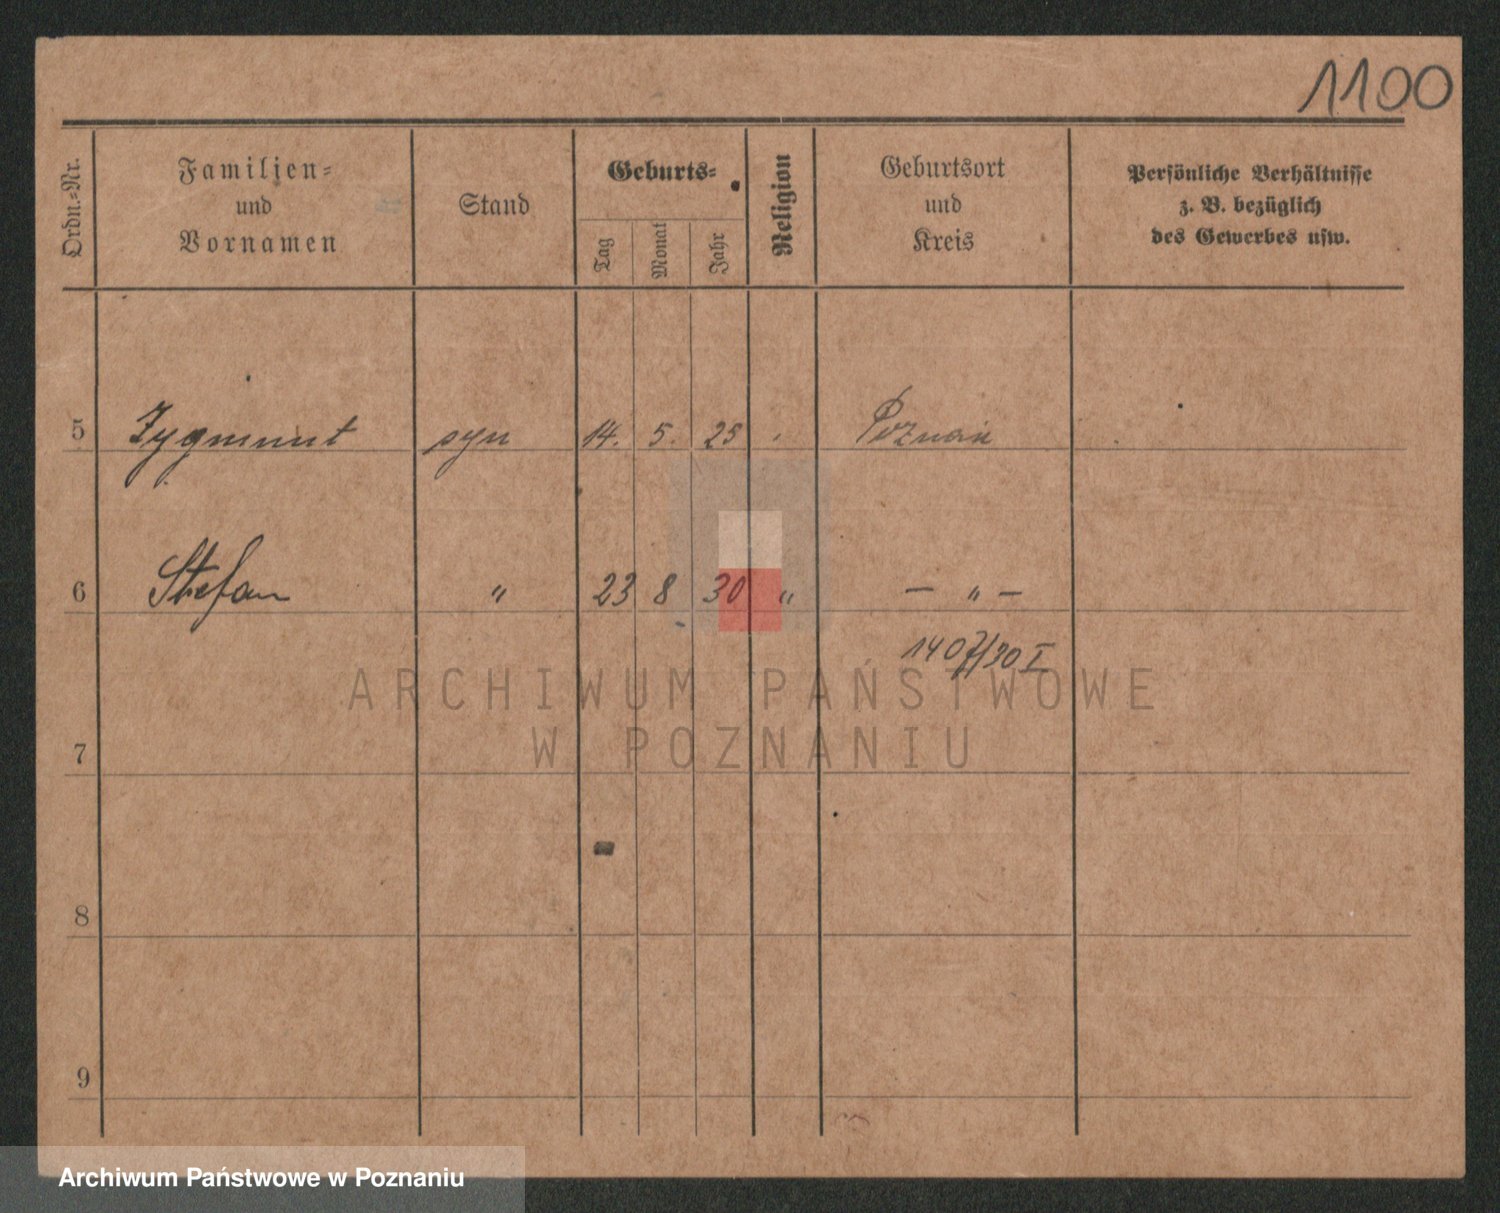 1100
Ordn.-Nr.
Familien-
und
Vornamen
Stand
Geburts-
Tag
Monat
Jahr
Religion
Geburtsort
und
Kreis
Persönliche Verhältnisse
z. B. bezüglich
des Gewerbes usw.
5 Zygmunt syn 14. 5. 25 Poznań
6 Stefan " 23 8 30 " — " —
1407/30 I
ARCHIWUM PAŃSTWOWE
W POZNANIU
7
8
9
Archiwum Państwowe w Poznaniu